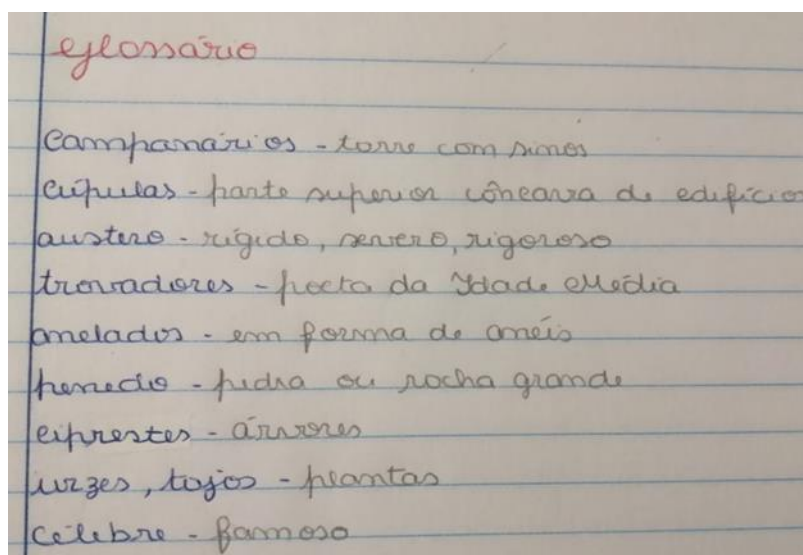 glossário
campanários - torre com sinos
cúpulas - parte superior côncava de edifício
austero - rígido, severo, rigoroso
trovadores - poeta da Idade Média
anelados - em forma de anéis
penedo - pedra ou rocha grande
ciprestes - árvores
urzes, tojos - plantas
célebre - famoso